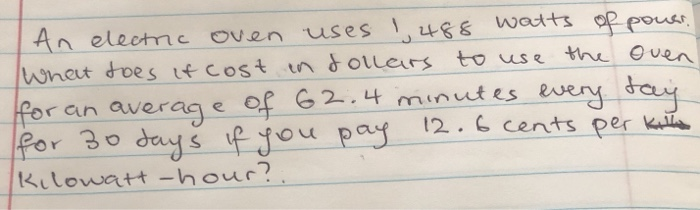 An electric oven uses 1,488 watts of power.
What does it cost in dollars to use the oven
for an average of 62.4 minutes every day
for 30 days if you pay 12.6 cents per
Kilowatt-hour?.